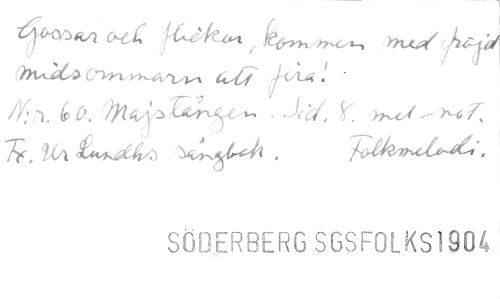 Gossar och flickor, kommen med fröjd
midsommarn att fira!
N:r. 60. Majstången. Sid. 8. mel-not.
Fr. Ur Lundhs sångbok. Folkmelodi.
SÖDERBERG SGSFOLKS1904